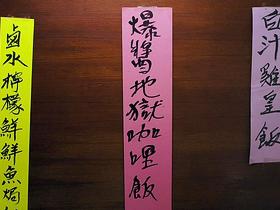 白汁雞皇飯
爆醬地獄咖哩飯
鹵水檸檬鮮鮮魚焗